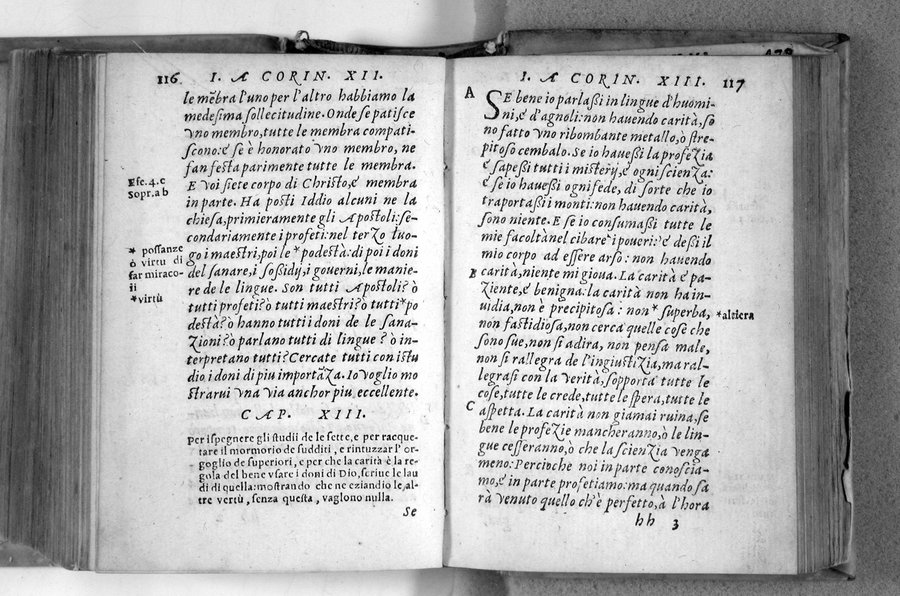 116 I. A CORIN. XII.
le mẽbra l'uno per l'altro habbiamo la
medesima sollecitudine. Onde se patisce
vno membro, tutte le membra compati-
scono: é se è honorato vno membro, ne
fan festa parimente tutte le membra.
E voi siete corpo di Christo, é membra
in parte. Ha posti Iddio alcuni ne la
chiesa, primieramente gli Apostoli: se-
condariamente i profeti: nel terzo luo-
go i maestri, poi le * podestà: di poi i doni
del sanare, i sossidij, i governi, le manie-
re de le lingue. Son tutti Apostoli? ò
tutti profeti? ò tutti maestri? ò tutti * po
destà? ò hanno tutti i doni de le sana-
zioni? ò parlano tutti di lingue? ò in-
terpretano tutti? Cercate tutti con istu
dio i doni di piu importãza. Io voglio mo
strarui vna via anchor piu eccellente.
Efe. 4. c
Sopr. a b
* possanze
ò virtu di
far miraco-
li
* virtù
CAP. XIII.
Per ispegnere gli studii de le sette, e per racque-
tare il mormorio de sudditi, e rintuzzar l'or-
goglio de superiori, e per che la carità è la re-
gola del bene vsare i doni di Dio, scriue le lau
di di quella: mostrando che ne eziandio le, al-
tre vertù, senza questa, vaglono nulla.
Se
I. A CORIN. XIII. 117
A
SE bene io parlassi in lingue d'huomi-
ni, é d'agnoli: non hauendo carità, so
no fatto vno ribombante metallo, ò stre-
pitoso cembalo. Se io hauessi la profezia
é sapessi tutti i misterij, é ogni scienza:
é se io hauessi ogni fede, di sorte che io
traportassi i monti: non hauendo carità,
sono niente. E se io consumassi tutte le
mie facoltà nel cibare i poueri: é dessi il
mio corpo ad essere arso: non hauendo
B
carità, niente mi gioua. La carità é pa-
ziente, é benigna: la carità non ha in-
uidia, non è precipitosa: non * superba,
* altiera
non fastidiosa, non cerca quelle cose che
sono sue, non si adira, non pensa male,
non si rallegra de l'ingiustizia, ma ral-
legrasi con la verità, sopporta tutte le
cose, tutte le crede, tutte le spera, tutte le
C
aspetta. La carità non giamai ruina, se
bene le profezie mancheranno, ò le lin-
gue cesseranno, ò che la scienzia venga
meno: Percioche noi in parte conoscia-
mo, é in parte profetiamo: ma quando sa
rà venuto quello ch'è perfetto, à l'hora
hh 3